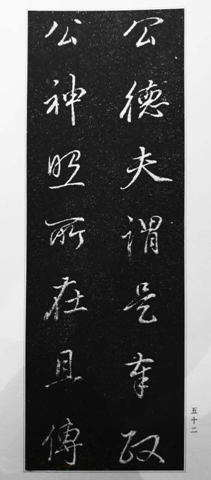 公德夫謂是奉政
公神照所在且傳
五十二